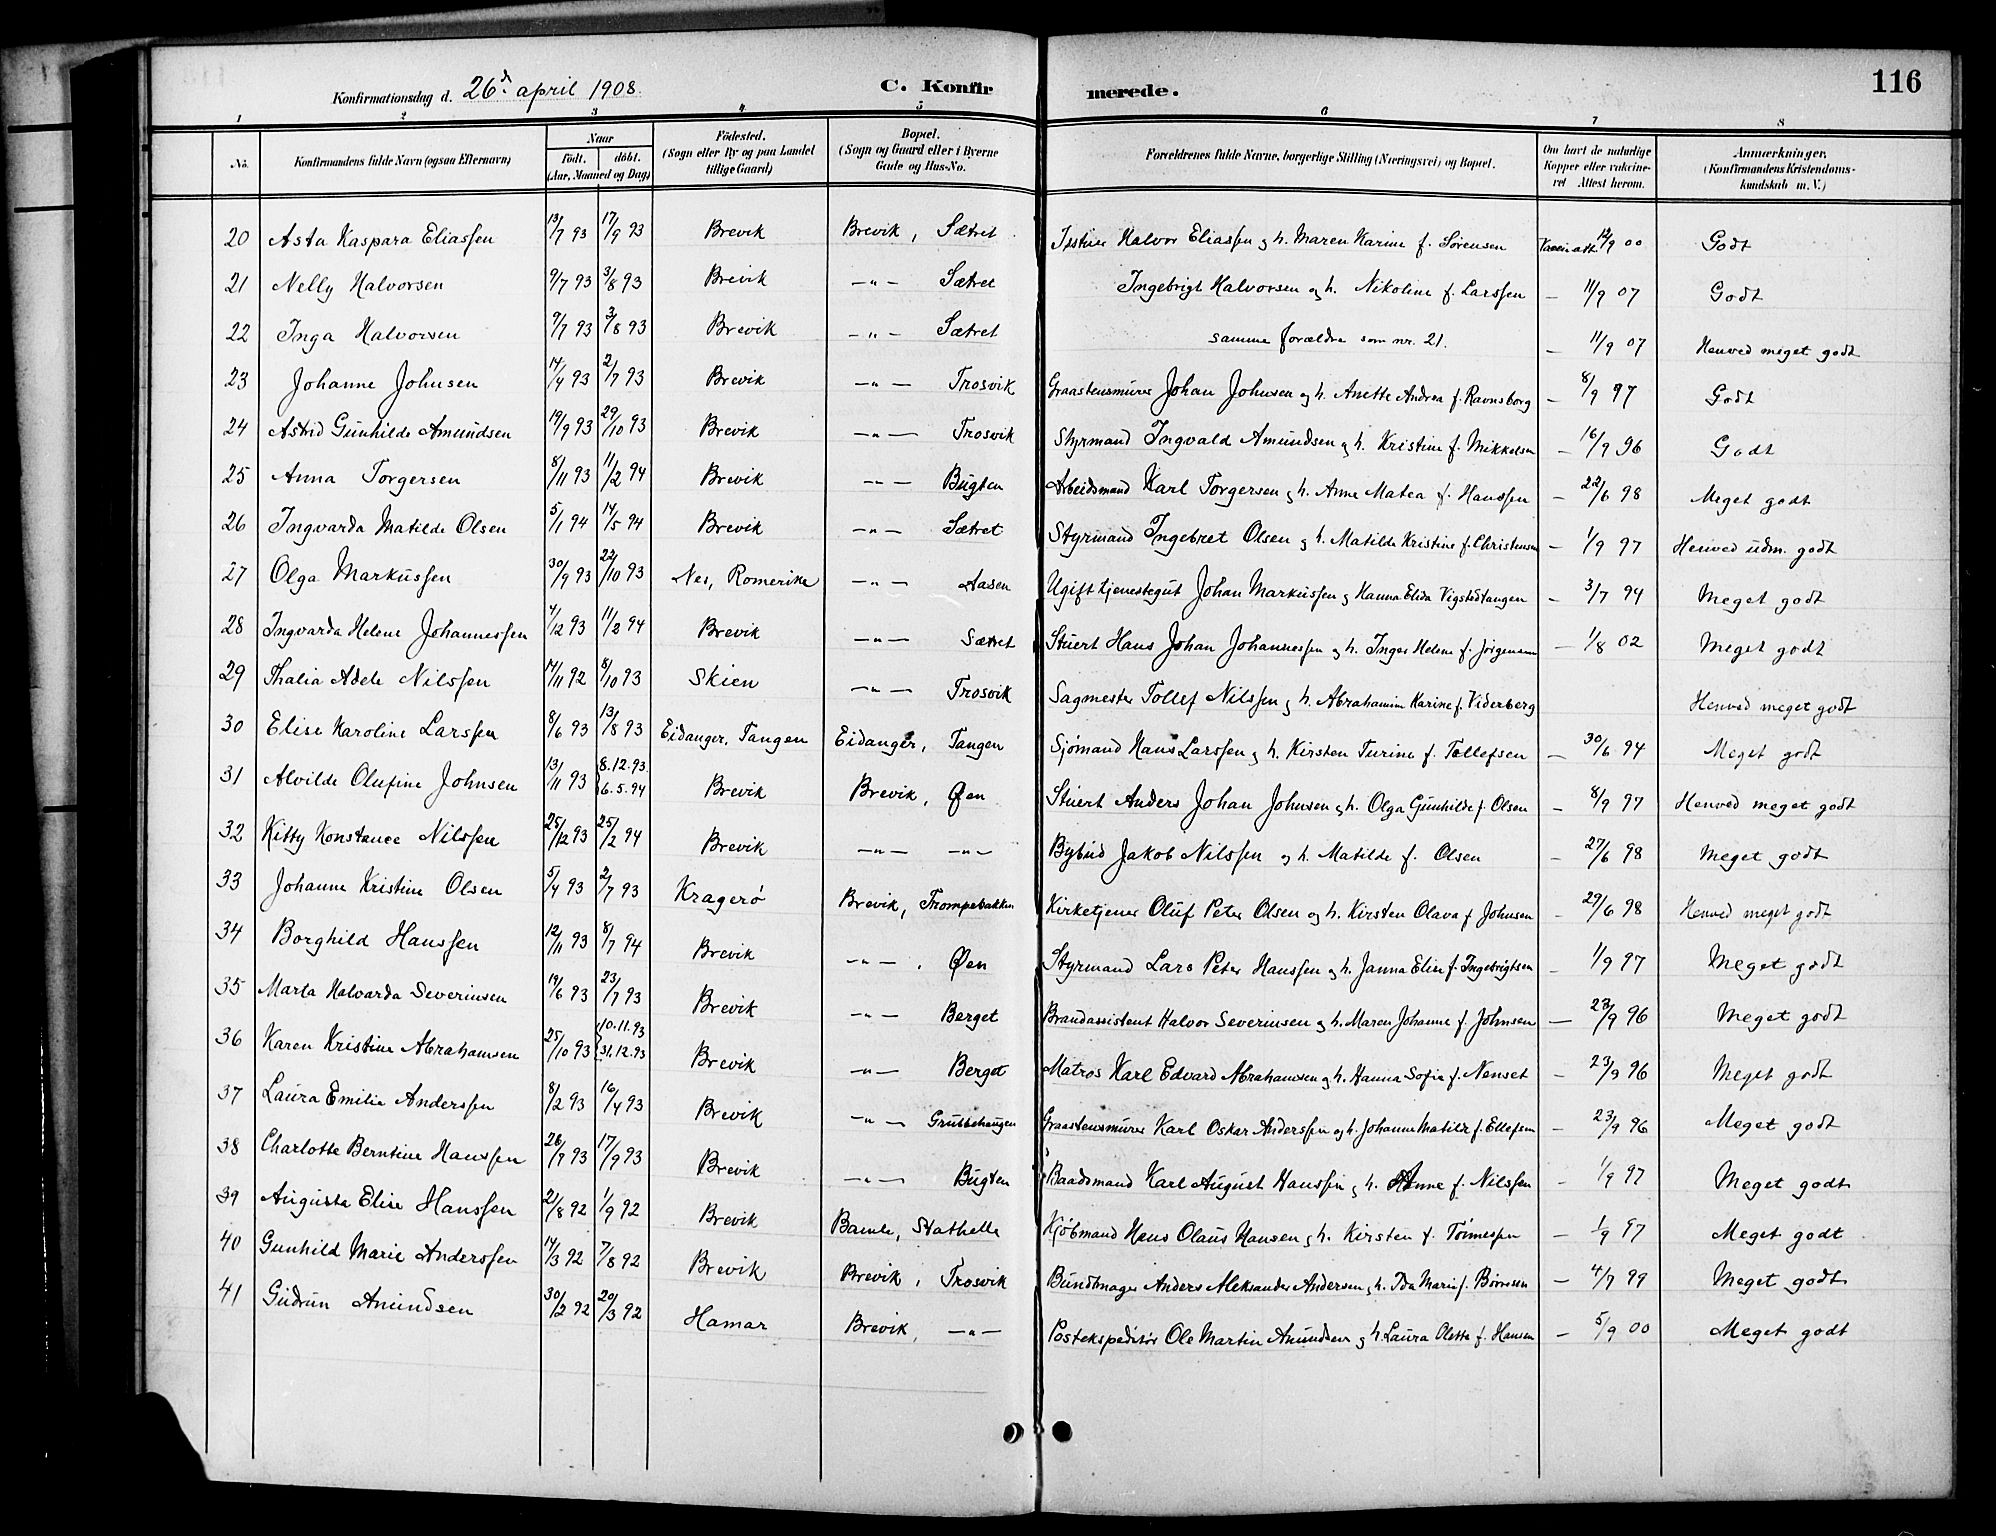 116
Konfirmationsdag d. 26d. april 1908. C. Konfirmerede.
1 2 3 4 5 6 7 8
No. Konfirmandens fulde Navn (ogsaa Efternavn) Naar født. døbt. (Aar, Maaned og Dag) Fødested. (Sogn eller By og paa Landet tillige Gaard) Bopæl. (Sogn og Gaard eller i Byerne Gade og Hus-No. Forældrenes fulde Navne, borgerlige Stilling (Næringsvei) og Bopæl. Om havt de naturlige Kopper eller vakcineret Attest herom. Anmærkninger. (Konfirmandens Kristendomskundskab m. V.)
20 Asta Kaspara Eliassen 13/7 93 17/9 93 Brevik Brevik, Sætret Halvor Eliassen og h. Maren Karine f. Sørensen 12/9 00 Godt
21 Nelly Halvorsen 9/7 93 3/8 93 Brevik —„— Sætret Ingebrigt Halvorsen og h. Nikoline f. Larssen — 11/9 07 Godt
22 Inga Halvorsen 9/7 93 3/8 93 Brevik —„— Sætret samme forældre som nr. 21. — 11/9 07 Henved meget godt
23 Johanne Johnsen 14/4 93 2/7 93 Brevik —„— Trosvik Graastensmurer Johan Johnsen og h. Anette Andrea f. Ravnsborg — 8/9 97 Godt
24 Astrid Gunhilde Amundsen 19/9 93 29/10 93 Brevik —„— Trosvik Styrmand Ingvald Amundsen og h. Kristine f. Mikkelsen — 16/9 96 Godt
25 Anna Torgersen 8/11 93 11/2 94 Brevik —„— Bugten Arbeidsmand Karl Torgersen og h. Anne Matea f. Hanssen — 22/6 98 Meget godt
26 Ingvarda Matilde Olsen 5/1 94 14/5 94 Brevik —„— Sætret Styrmand Ingebret Olsen og h. Matilde Kristine f. Christensen — 1/9 97 Henved udm. godt
27 Olga Markussen 30/9 93 22/10 93 Nes, Romerike —„— Aasen Ugift tjenestegut Johan Markussen og Hanna Elida Vigstedtangen — 3/7 94 Meget godt
28 Ingvarda Helene Johannessen 4/12 93 11/2 94 Brevik —„— Sætret Stuert Hans Johan Johannessen og h. Inger Helene f. Jørgensen — 1/8 02 Meget godt
29 Thalia Adele Nilssen 17/11 92 8/10 93 Skien —„— Trosvik Sagmester Tollef Nilssen og h. Abrahamine Karine f. Viderberg Henved meget godt
30 Elise Karoline Larssen 8/6 93 13/8 93 Eidanger, Tangen Eidanger, Tangen Sjømand Hans Larssen og h. Kirsten Turine f. Tollefsen — 30/6 94 Meget godt
31 Alvilde Olufine Johnsen 13/11 93 8.12.93 6.5.94 Brevik Brevik, Øen Stuert Anders Johan Johnsen og h. Olga Gunhilde f. Olsen — 8/9 97 Henved meget godt
32 Kitty Konstance Nilssen 25/12 93 25/2 94 Brevik —„— —„— Bybud Jakob Nilssen og h. Matilde f. Olsen — 27/6 98 Meget godt
33 Johanne Kristine Olsen 5/4 93 2/7 93 Kragerø Brevik, Trompebakken Kirketjener Oluf Peter Olsen og h. Kirsten Olava f. Johnsen — 29/6 98 Henved meget godt
34 Borghild Hanssen 12/11 93 8/7 94 Brevik —„—, Øen Styrmand Lars Peter Hanssen og h. Janna Elise f. Ingebrigtsen — 1/9 97 Meget godt
35 Marta Halvarda Severinsen 19/6 93 23/7 93 Brevik —„— Berget Brandassistent Halvor Severinsen og h. Maren Johanne f. Johnsen — 23/9 96 Meget godt
36 Karen Kristine Abrahamsen 25/10 93 10.11.93 31.12.93 Brevik —„— Berget Matros Karl Edvard Abrahamsen og h. Hanna Sofie f. Nenset — 23/9 96 Meget godt
37 Laura Emilie Anderssen 8/2 93 16/4 93 Brevik —„— Grubbehaugen Graastensmurer Karl Oskar Anderssen og h. Johanne Matilde f. Ellefsen — 23/9 96 Meget godt
38 Charlotte Berntine Hanssen 28/7 93 17/9 93 Brevik —„— Bugten Baadsmand Karl August Hanssen og h. Anne f. Nilssen — 1/9 97 Meget godt
39 Augusta Elise Hanssen 21/8 92 1/9 92 Brevik Bamle, Stathelle Kjøbmand Hans Olaus Hansen og h. Kirsten f. Tønnessen — 1/9 97 Meget godt
40 Gunhild Marie Anderssen 14/3 92 7/8 92 Brevik Brevik, Trosvik Bundtmager Anders Aleksander Andersen og h. Ida Marie f. Børresen — 4/7 99 Meget godt
41 Gudrun Amundsen 30/2 92 20/3 92 Hamar Brevik, —„— Postekspeditør Ole Martin Amundsen og h. Laura Olette f. Hansen — 5/9 00 Meget godt